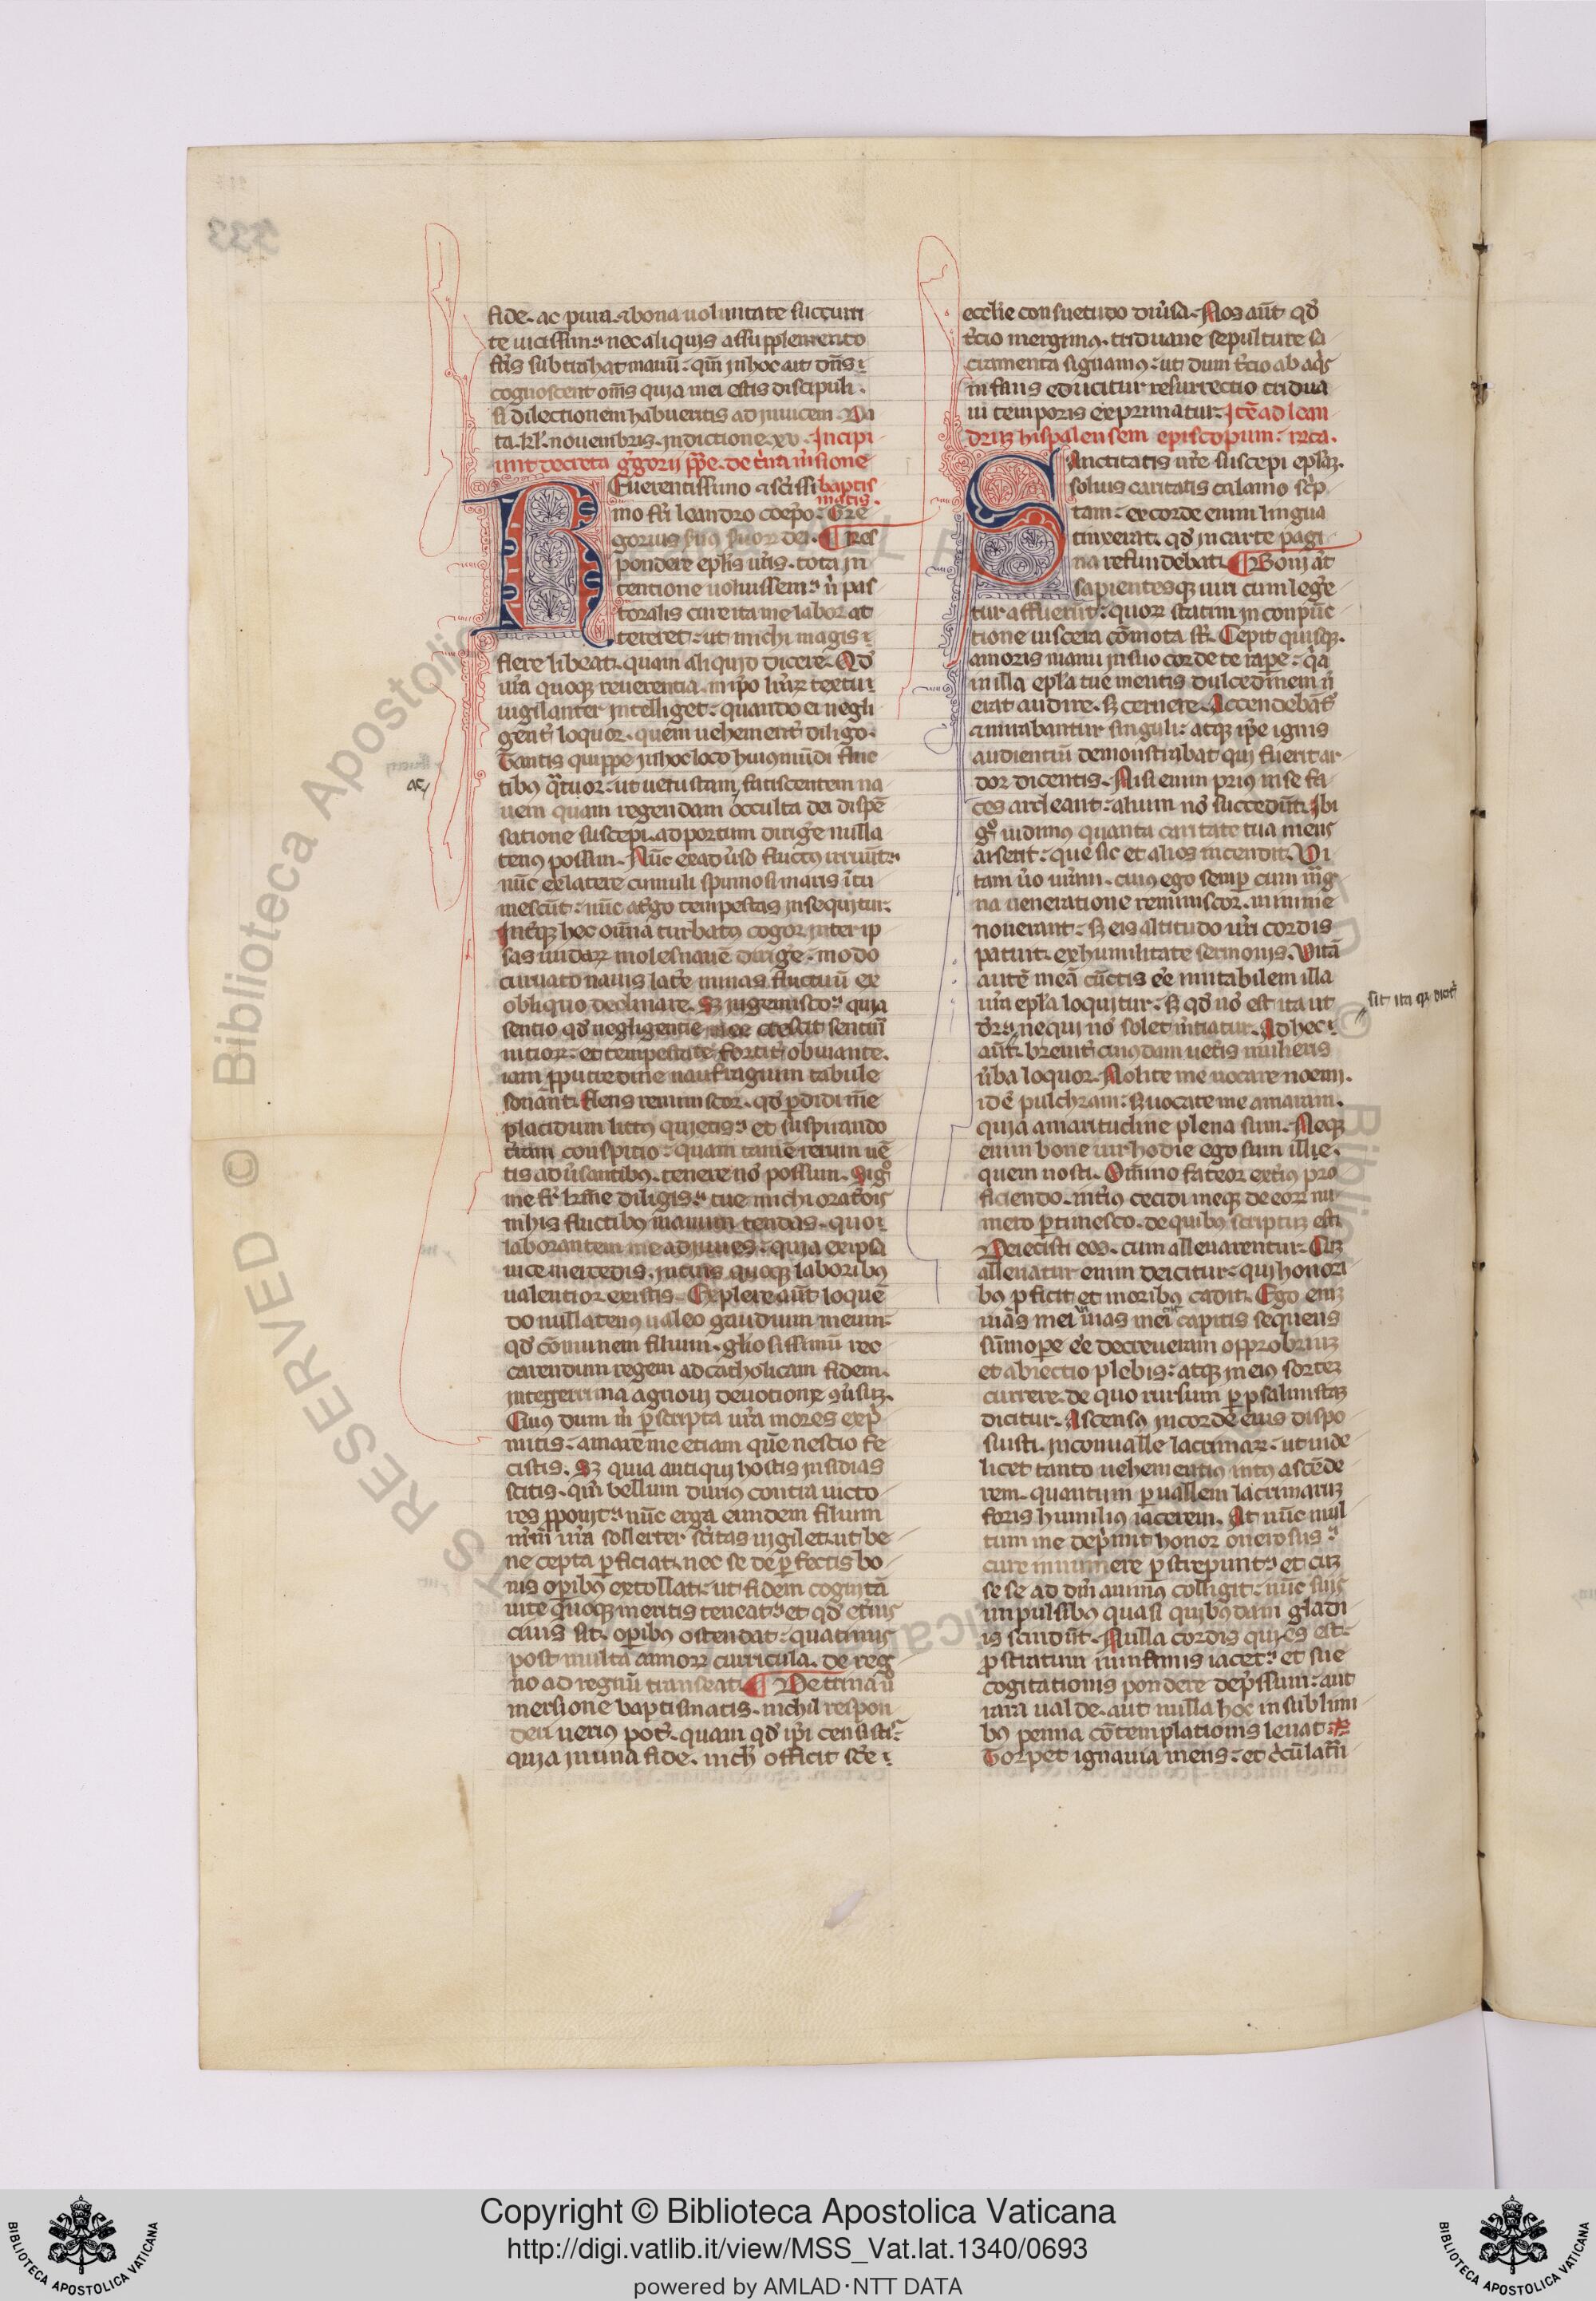 fide. ac pura. ⁊ bona uoluntate succurri
te uicissim. nec aliquis assupplemento
fr̄is subtrahat manū. qm̄ in hoc ait dn̄s.
cognoscent om̄s quia mei estis discipuli.
si dilectionem habueritis ad inuicem. Da
ta. kl'. nouembris. indictione. xv. Incipi
unt decreta g̓gorij pp̄e. de t̓na m̓sione
baptis
matis.
Reuerentissimo ⁊ sc̄issi
mo fr̄i leandro coep̄o. Gre
gorius suus seruor̄ dei. ¶ Res
pondere epl̄is ur̄is. tota in
tentione uoluissem. n̓ pas
toralis cure ita me labor at
tereret. ut michi magis
flere libeat. quam aliquid dicere. Qd̓
ur̄a quoque reuerentia. in ip̄o lr̄arum textu
uigilanter intelliget. quando ei negli
gent̓ loquor. quem uehement̓ diligo.
Tantis quippe in hoc loco huius mūdi fluc
tibus q̄tuor. ut uetustam, fatiscentem na
ac,
uem quam regendam occulta dei dispē
satione suscepi. ad portum dirig̓e nulla
tenus possim. Nūc ex ad̓uso fluctus irruūt.
nūc ex latere cumuli spumosi maris ītu
mescūt. nūc at̓go tempestas insequitur.
Int̓que hec om̄ia turbatus cogor inter ip
sas undarum moles nauē dirig̓e. modo
curuato nauis lat̓e minas fluctuū ex
obliquo declinare. Sed ingemisco. quia
sentio qd̓ negligentie mee crescit sentin̄
uitiorum. et tempestate fortit̓ obuiante.
iam pputredine naufragium tabule
sonant. Flens reminiscor. qd̓ p̱didi m̄e
placidum littus quietis. et suspirando
terram conspicio. quam tamē rerum uē
tis ad̓usantibus. tenere nō possum. Si g̊
me fr̄ kr̄me diligis. tue michi orat̓ōis
in his fluctibus manum tendas. quo
laborantem me adiuues. quia ex ipsa
uice mercedis. in tuis quoque laboribus
ualentior existis. Explere aūt loquē
do nullatenus ualeo gaudium meum.
qd̓ cōmunem filium. gl̄iosissimū rec
carendum regem ad catholicam fidem.
integerrima agnoui deuotione ꝯuersum.
Cuius dum m̓ p̱ scripta ur̄a mores exp̓
mitis. amare me etiam quē nescio fe
cistis. Sed quia antiqui hostis insidias
scitis. qm̄ bellum durius contra uicto
res pponit. nūc erga eundem filium
ur̄a sollerter sc̄itas uigilet. ut be
ne cepta p̱ficiat. nec se de p̱fectis bo
nis op̱ibus extollat. ut fidem cognitā
uite quoque meritis teneat. et qd̓ et̓nus
ciuis sit. op̱ibus ostendat. quatinus
post multa annorum curricula. de reg
no ad regnū transeat. ¶ De trina ū
mersione baptismatis. nichil respon
deri uerius pot̓. quam qd̓ ip̄i censistis.
quia in una fide. nich̓ officit sc̄e
eccl̄ie consuetudo diu̓sa. Nos aūt qd̓
t̓cio mergimus. triduane sepulture sa
cramenta signamus. ut dum t̓cio ab aq̓s
infans educitur resurrectio tridua
ni temporis exprimatur. Itē ad lean
drum hispalensem episcopum.
Sanctitatis ur̄e suscepi epl̄am.
solius caritatis calamo sc̓p
tam. ex corde enim lingua
tinxerat. qd̓ in carte pagi
na refundebat. ¶ Boni aūt
sapientesque uiri cum lege
tur affuerūt. quorum statim in conpūc
tione uiscera cōmota sunt. Cepit quisque
amoris manu in suo corde te rape. q̓a
in illa epl̄a tue mentis dulcedinem n̓
erat audire. sed cernere. Accendebāt̓
⁊ mirabantur singuli. atque ip̄e ignis
audientiū demonstrabat qui fuerit ar
dor dicentis. Nisi enim prius in se fa
ces ardeant. alium nō succedūt. Ibi
g̊ uidimus quanta caritate tua mens
arserit. que sic et alios incendit. Vi
tam u̓o ur̄am. cuius ego semper cum mag
na ueneratione reminiscor. minime
nouerant. sed eis altitudo ur̄i cordis
patuit. ex humilitate sermonis. Vitā
autē meā cūctis eē imitabilem illa
ur̄a epl̄a loquitur. sed qd̓ nō est ita ut
sit ita qr̄ dicit̓
dr̄. nequi nō solet mentiatur. Ad hec
aūt. breuit̓ cuiusdam uet̓is mulieris
u̓ba loquor. Nolite me uocare noemi.
id ē pulchram. sed uocate me amaram.
quia amaritudine plena sum. Neque
enim bone uir hodie ego sum ille.
quem nosti. Om̄ino fateor ext̓ius pro
ficiendo. int̓ius cecidi meque de eorum nu
mero p̱timesco. de quibus scriptum est.
Deiecisti eos. cum alleuarentur. Cum
alleuatur enim deicitur. qui honori
bus p̱ficit et moribus cadit. Ego enim
uias mei capitis sequens
sūmope eē decreueram opprobrium
et abiectio plebis. atque in eius sortem
currere. de quo rursum p̱ psalmistam
dicitur. Ascensus in corde eius dispo
suisti. in conualle lacrimarum. ut uide
licet tanto uehementius intus ascēde
rem. quantum p̱ uallem lacrimarum
foris humilius iacerem. At nūc mul
tum me dep̓mit honor onerosus.
cure innumere p̱strepunt. et cum
se se ad dm̄ animus colligit. nūc suis
impulsibus quasi quibusdam gladi
is scindūt. Nulla cordis quies est.
prostratum in infimis iacet. et sue
cogitationis pondere dep̓ssum. aut
rara ualde. aut nulla hoc in sublimi
bus penna cōtemplationis leuat.
Torpet ignauia mens. et c̓cūlatr̄
Copyright © Biblioteca Apostolica Vaticana
http://digi.vatlib.it/view/MSS_Vat.lat.1340/0693
powered by AMLAD·NTT DATA
BIBLIOTECA APOSTOLICA VATICANA
BIBLIOTECA APOSTOLICA VATICANA